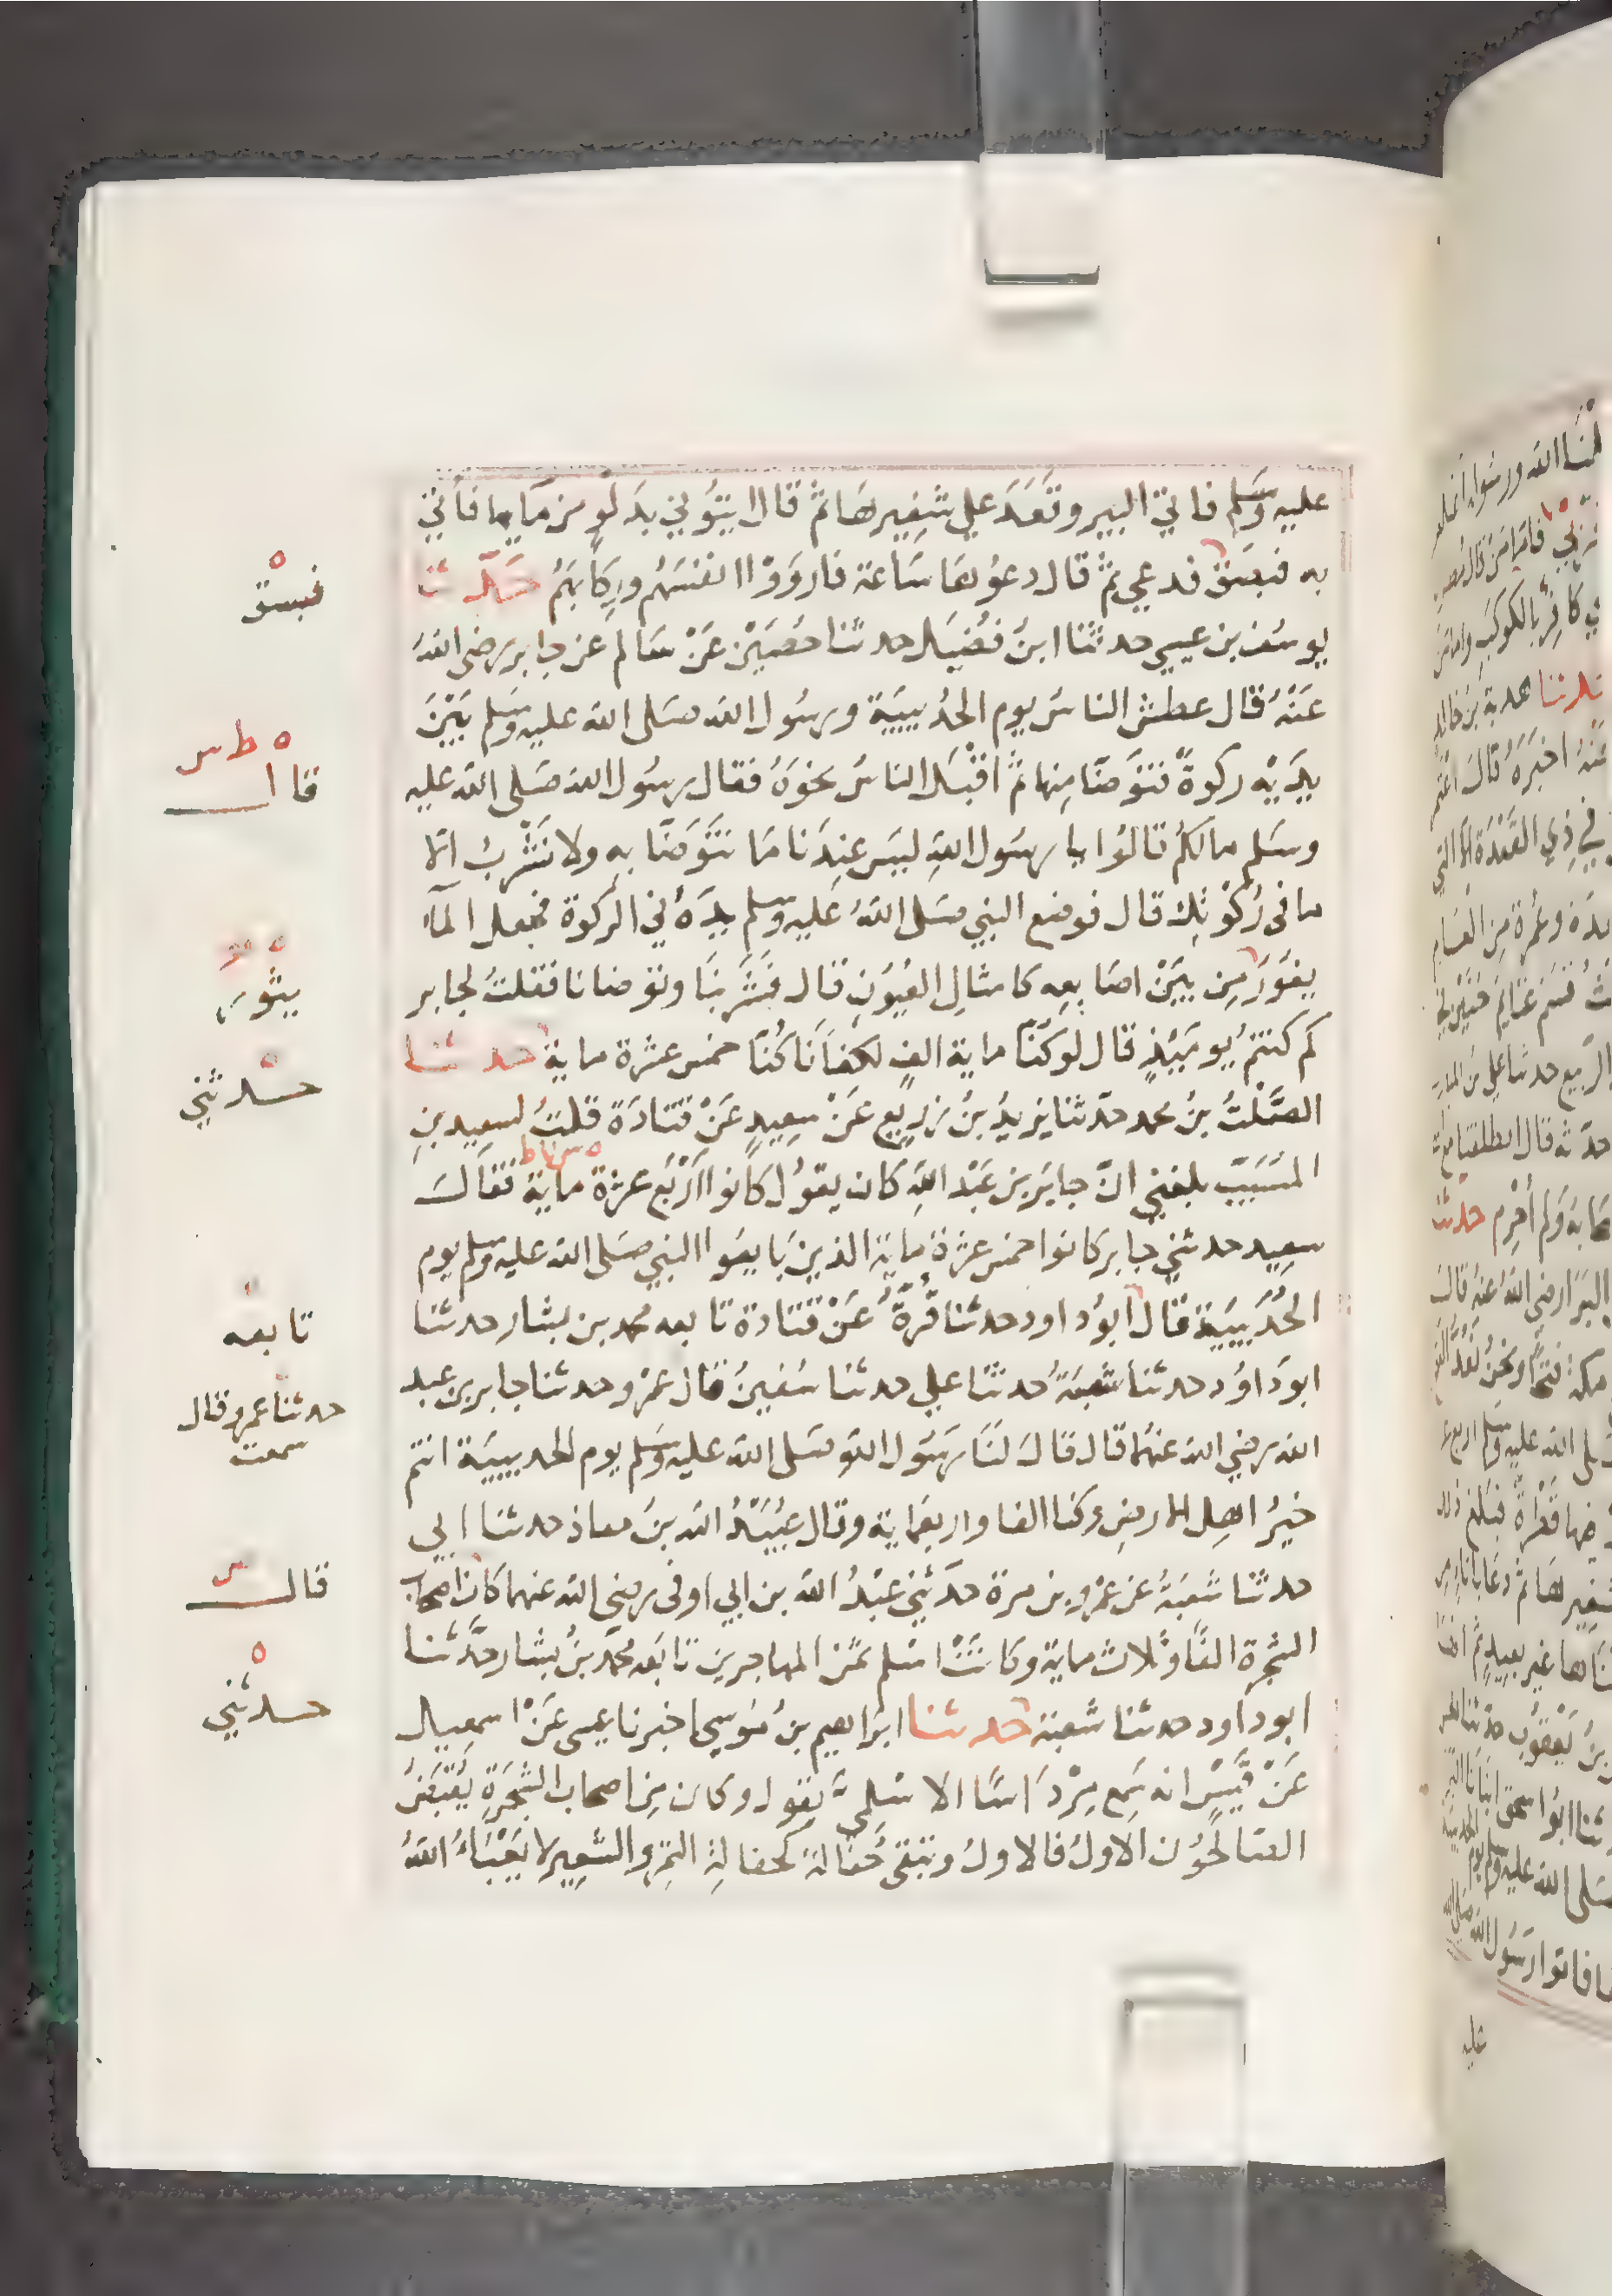 عليه وسلم فاتي البير وقعد علي شفيرها ثم قال ايتوني بدلو من مايها فأتي
به فبصق فدعي ثم قال دعوها ساعة فارووا انفسهم وركابهم حدثنا
يوسف بن عيسي حدثنا ابن فضيل حدثنا حصين عن سالم عن جابر رضي الله
عنه قال عطش الناس يوم الحديبية ورسول الله صلى الله عليه وسلم بين
يديه ركوة فتوضأ منها ثم اقبل الناس نحوه فقال رسول الله صلى الله عليه
وسلم مالكم قالوا يا رسول الله ليس عندنا ما نتوضأ به ولا نشرب الا
ما في ركوتك قال فوضع النبي صلى الله عليه وسلم يده في الركوة فجعل المآء
يفور من بين اصابعه كامثال العيون قال فشربنا وتوضانا فقلت لجابر
كم كنتم يوميذ قال لو كنا ماية الف لكفانا كنا خمس عشرة ماية حدثنا
الصلت بن محمد حدثنا يزيد بن زريع عن سعيد عن قتادة قلت لسعيد بن
المسيب بلغني ان جابر بن عبد الله كان يقول كانوا اربع عشرة ماية فقال
سعيد حدثني جابر كانوا خمس عشرة ماية الذين بايعوا النبي صلى الله عليه وسلم يوم
الحديبية قال ابو داود حدثنا قرة عن قتادة تابعه محمد بن بشار حدثنا
ابو داود حدثنا شعبة حدثنا علي حدثنا سفين قال عمرو حدثنا جابر بن عبد
الله رضي الله عنهما قال قال لنا رسول الله صلى الله عليه وسلم يوم الحديبية انتم
خير اهل الارض وكنا الفا واربعماية وقال عبيد الله بن معاذ حدثنا ابي
حدثنا شعبة عن عمرو بن مرة حدثني عبد الله بن ابي اوفى رضي الله عنهما كان اصحاب
الشجرة الفا وثلاث ماية وكانت اسلم ثمن المهاجرين تابعه محمد بن بشار حدثنا
ابو داود حدثنا شعبة حدثنا ابراهيم بن موسي اخبرنا عيسى عن اسمعيل
عن قيس انه سمع مرداسا الاسلمي يقول وكان من اصحاب الشجرة يقبض
الصالحون الاول فالاول وتبقى حفالة كحفالة التمر والشعير لا يعباء الله
فبسق
قال
يثور
حدثني
تابعه
حدثنا عمرو قال
سمعت
قال
حدثني